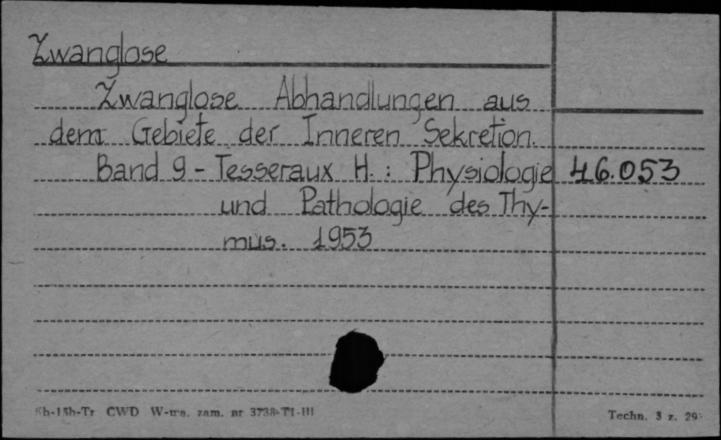 Zwanglose
Zwanglose Abhandlungen aus
dem Gebiete der Inneren Sekretion.
Band 9 - Tesseraux H. : Physiologie 46.053
und Pathologie des Thy-
mus. 1953
CWD W-wa. zam. nr 3738-T1-III Techn. 3 z. 29